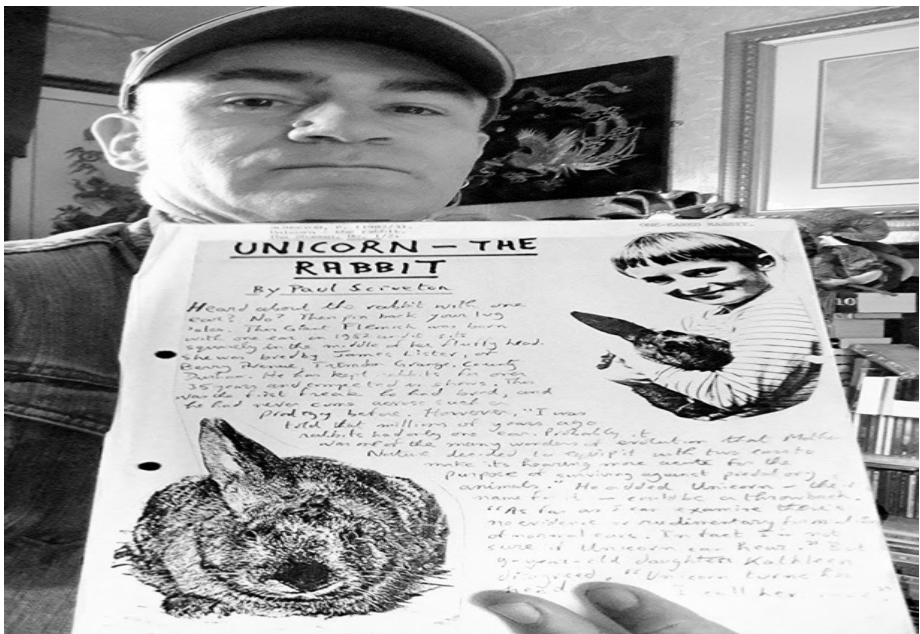 ONE-EARED RABBIT.
UNICORN — THE
RABBIT
By Paul Screeton
Heard about the rabbit with one
ear? No? Then pin back your lug
'oles. This Giant Flemish was born
with one ear in 1982 and it sits
squarely in the middle of her fluffy head.
She was bred by James Lister, of
Avenue, Grange, County
He has kept rabbits for over
35 years and competed in shows. This
was the first freak he had bred, and
he had never come across such a
prodigy before. However, "I was
told that millions of years ago
rabbits had only one ear. Probably it
was one of the many wonders of evolution that Mother
Nature decided to equip it with two ears to
make its hearing more acute for the
purpose of surviving against predatory
animals." He added Unicorn — their
name for it — could be a throwback.
"As far as I can examine there's
no evidence or rudimentary formation
of normal ears. In fact I'm not
sure if Unicorn can hear." But
9-year-old daughter Kathleen
disagreed, "Unicorn turns her
head I call her name"
10